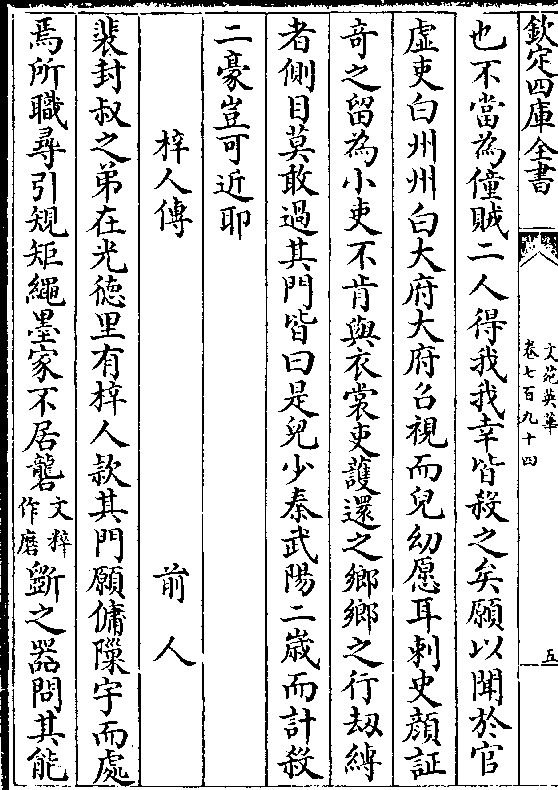 欽定四庫全書
文苑英華
卷七百九十四
五
也不當為僮賊二人得我我幸皆殺之矣願以聞於官
虛吏白州州白大府大府召視而兒幼愿耳刺史顔証
竒之留為小吏不肯與衣裳吏護還之鄉鄉之行刼縛
者側目莫敢過其門皆曰是兒少秦武陽二歲而計殺
二豪豈可近耶
梓人傳 前人
裴封叔之弟在光德里有梓人款其門願傭隟宇而處
焉所職尋引規矩繩墨家不居礲文粹作磨斵之器問其能